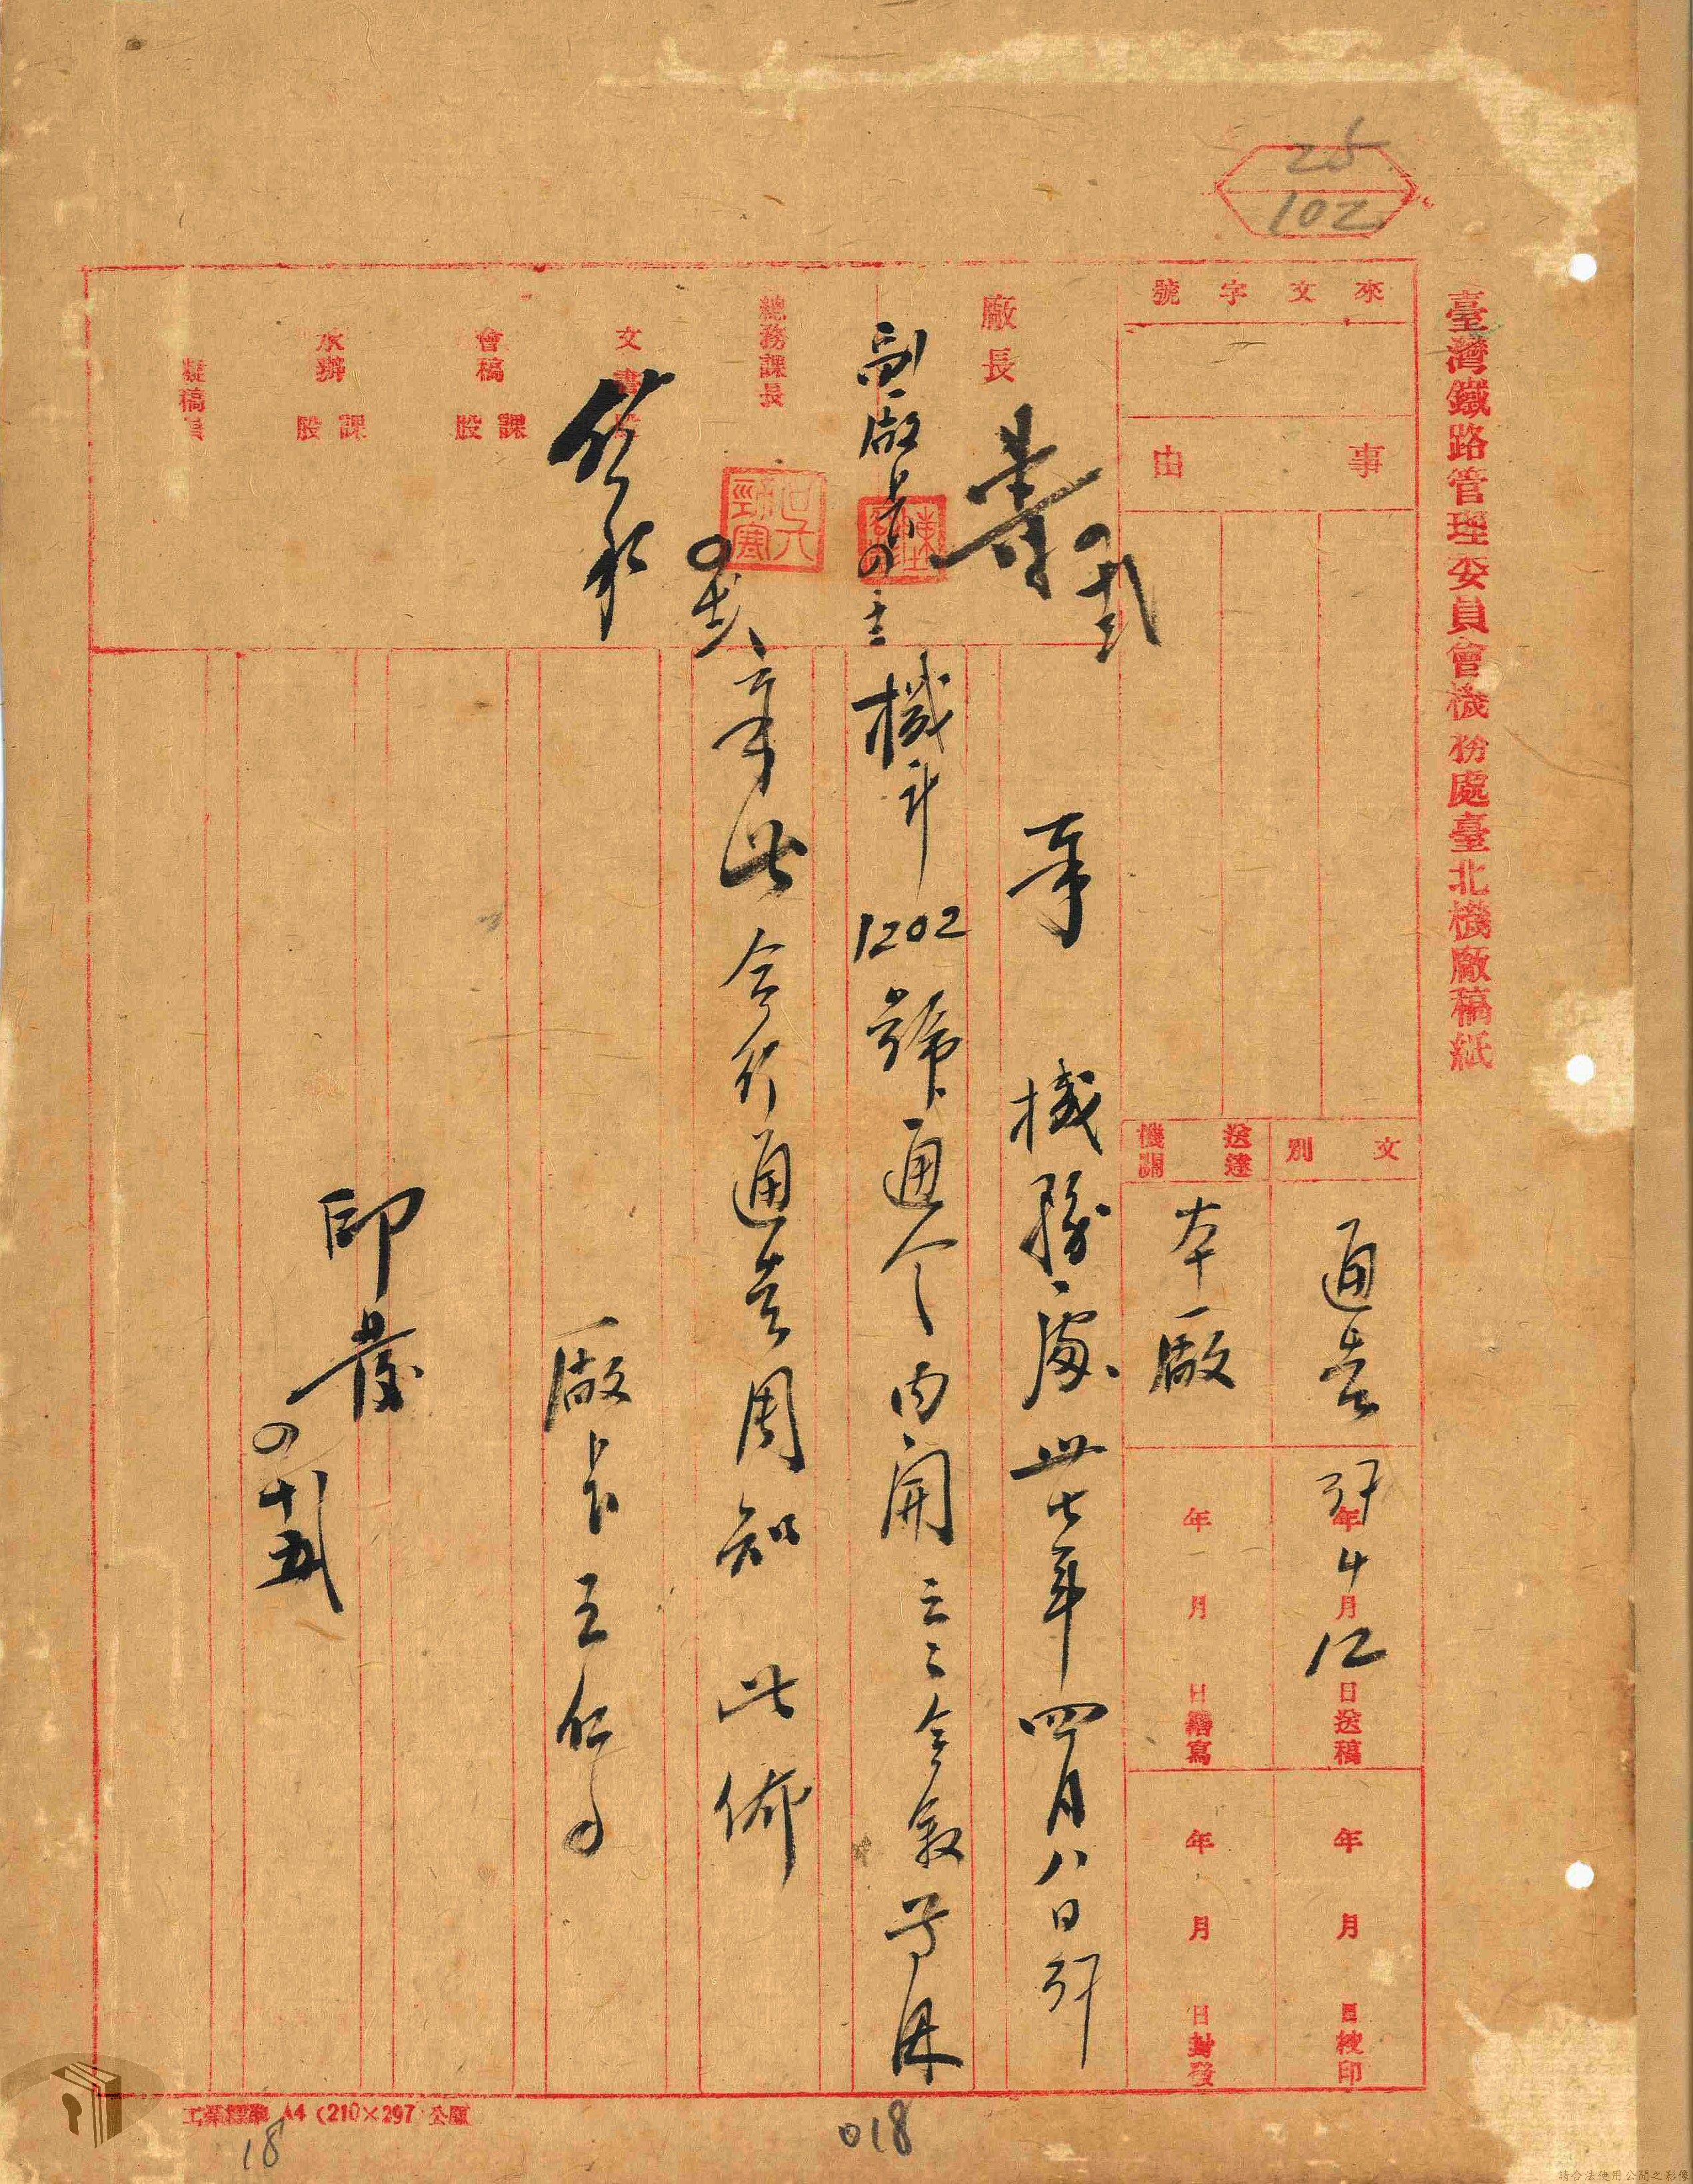 25
102
臺灣鐵路管理委員會機務處臺北機廠稿紙
來文字號
事由
文別
通告
送達機關
本廠
37年4月12日送稿
年月日繕寫
年月日校印
年月日封發
廠長
副廠長
總務課長
文書股
會稿 課股
承辦 課股
擬稿員
奉 機務處卅七年四月八日37
機計1202號通令內開云云全敘等因
奉此合行通告周知 此佈
廠長 王
印發
018
18
工業標準 A4 (210×297)公厘
請合法使用公開之影像